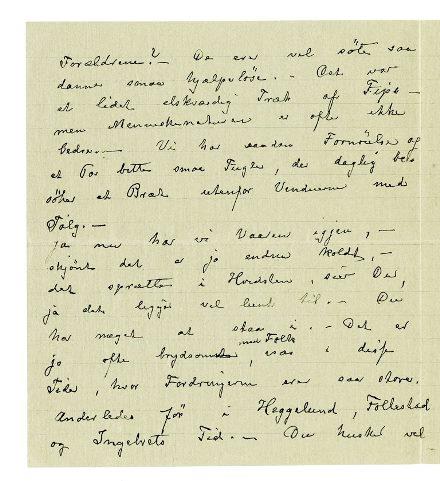 Forældrene? – De ere vel söte saa
danne smaa hjælpelöse. – Det var
et lidet elskværdig Træk af Fips –
men Menneskenaturen er ofte ikke
bedre. – Vi har saadan Fornöielse og
et Par bitte smaa Fugle, der daglig be
söker et Bræt udenfor Vinduerne med
Talg. –
Ja nu har vi Vaaren igjen, –
skjönt det er jo endnu koldt, –
det spretter i Hvidsten, siger Du,
ja det ligger vel lunt til. – Du
har noget at staa i. – Det er
jo ofte brydsomt med Folk, især i disse
Tider, hvor Fordringerne ere saa store.
Anderledes för i Heggelund, Fölleslad
og Ingebrets Tid. – Du husker vel